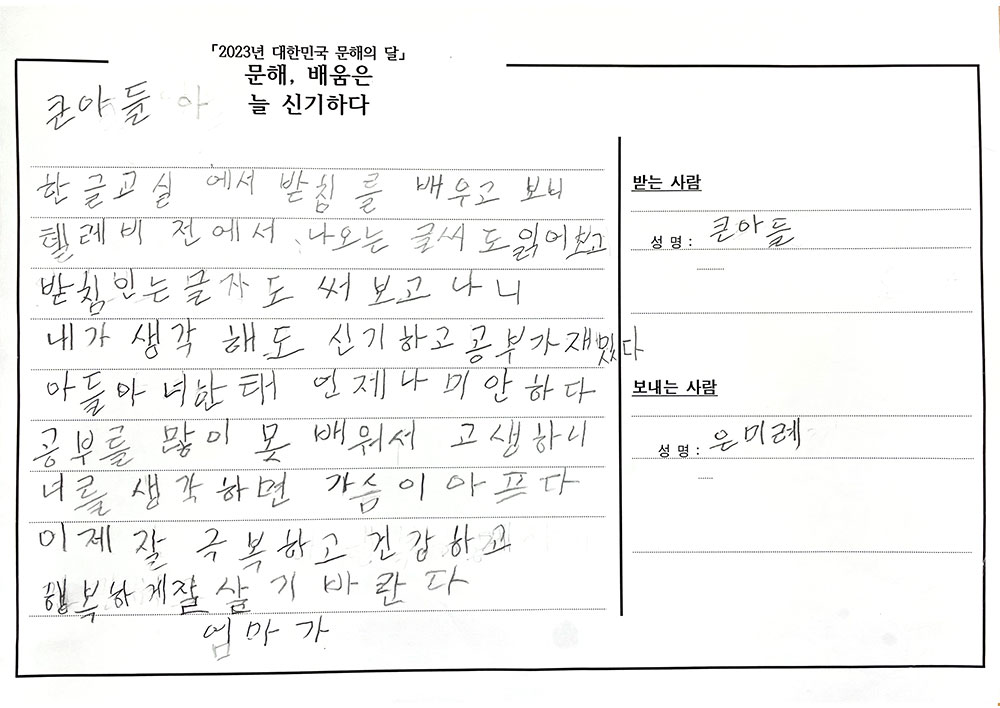 「2023년 대한민국 문해의 달」
문해, 배움은
늘 신기하다
큰아들아
한글교실에서 받침를 배우고 보니
텔레비전에서 나오는 글씨도 읽어보고
받침인는글자도 써보고나니
내가 생각해도 신기하고공부가재밌다
아들아 너한태 언제나 미안하다
공부를 많이 못 배워서 고생하니
너를 생각하면 가슴이 아프다
이제 잘 극복하고 건강하고
행복하게잘 살기 바란다
엄마가
받는 사람
성 명 : 큰아들
보내는 사람
성 명 : 은미례